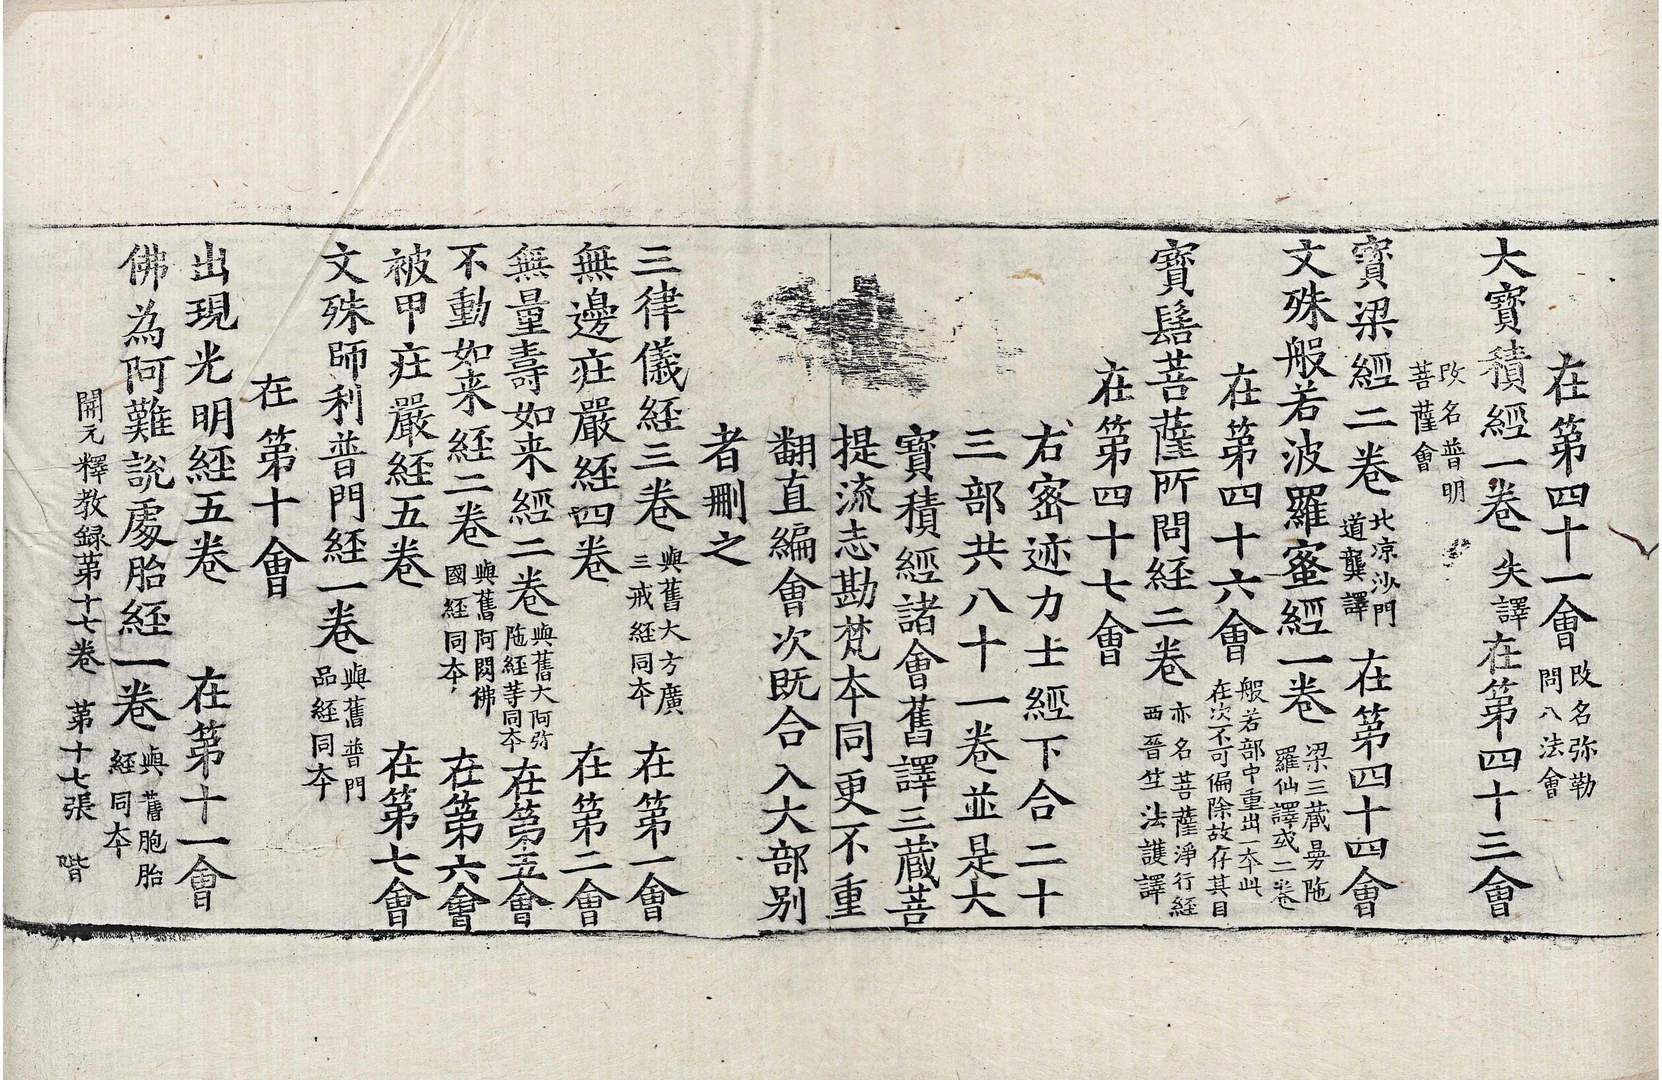 在第四十一會 改名弥勒問八法會
大寶積經一卷 失譯在第四十三會
改名普明菩薩會
寶梁經二卷 北凉沙門道龔譯 在第四十四會
文殊般若波羅蜜經一卷 梁三藏曼陁羅仙譯或二卷
在第四十六會 般若部中重出一本此在次不可偏除故存其目
寶髻菩薩所問經二卷 亦名菩薩淨行經西晉竺法護譯
在第四十七會
右密迹力士經下合二十
三部共八十一卷並是大
寶積經諸會舊譯三藏菩
提流志勘梵本同更不重
翻直編會次既合入大部别
者刪之
三律儀經三卷 與舊大方廣三戒經同本 在第一會
無邊莊嚴經四卷 在第二會
無量壽如来經二卷 與舊大阿弥陁經等同本 在第五會
不動如来經二卷 與舊阿閦佛國經同本 在第六會
被甲莊嚴經五卷 在第七會
文殊師利普門經一卷 與舊普門品經同本
在第十會
出現光明經五卷 在第十一會
佛為阿難說處胎經一卷 與舊胞胎經同本
開元釋教録第十七卷 第十七張 階